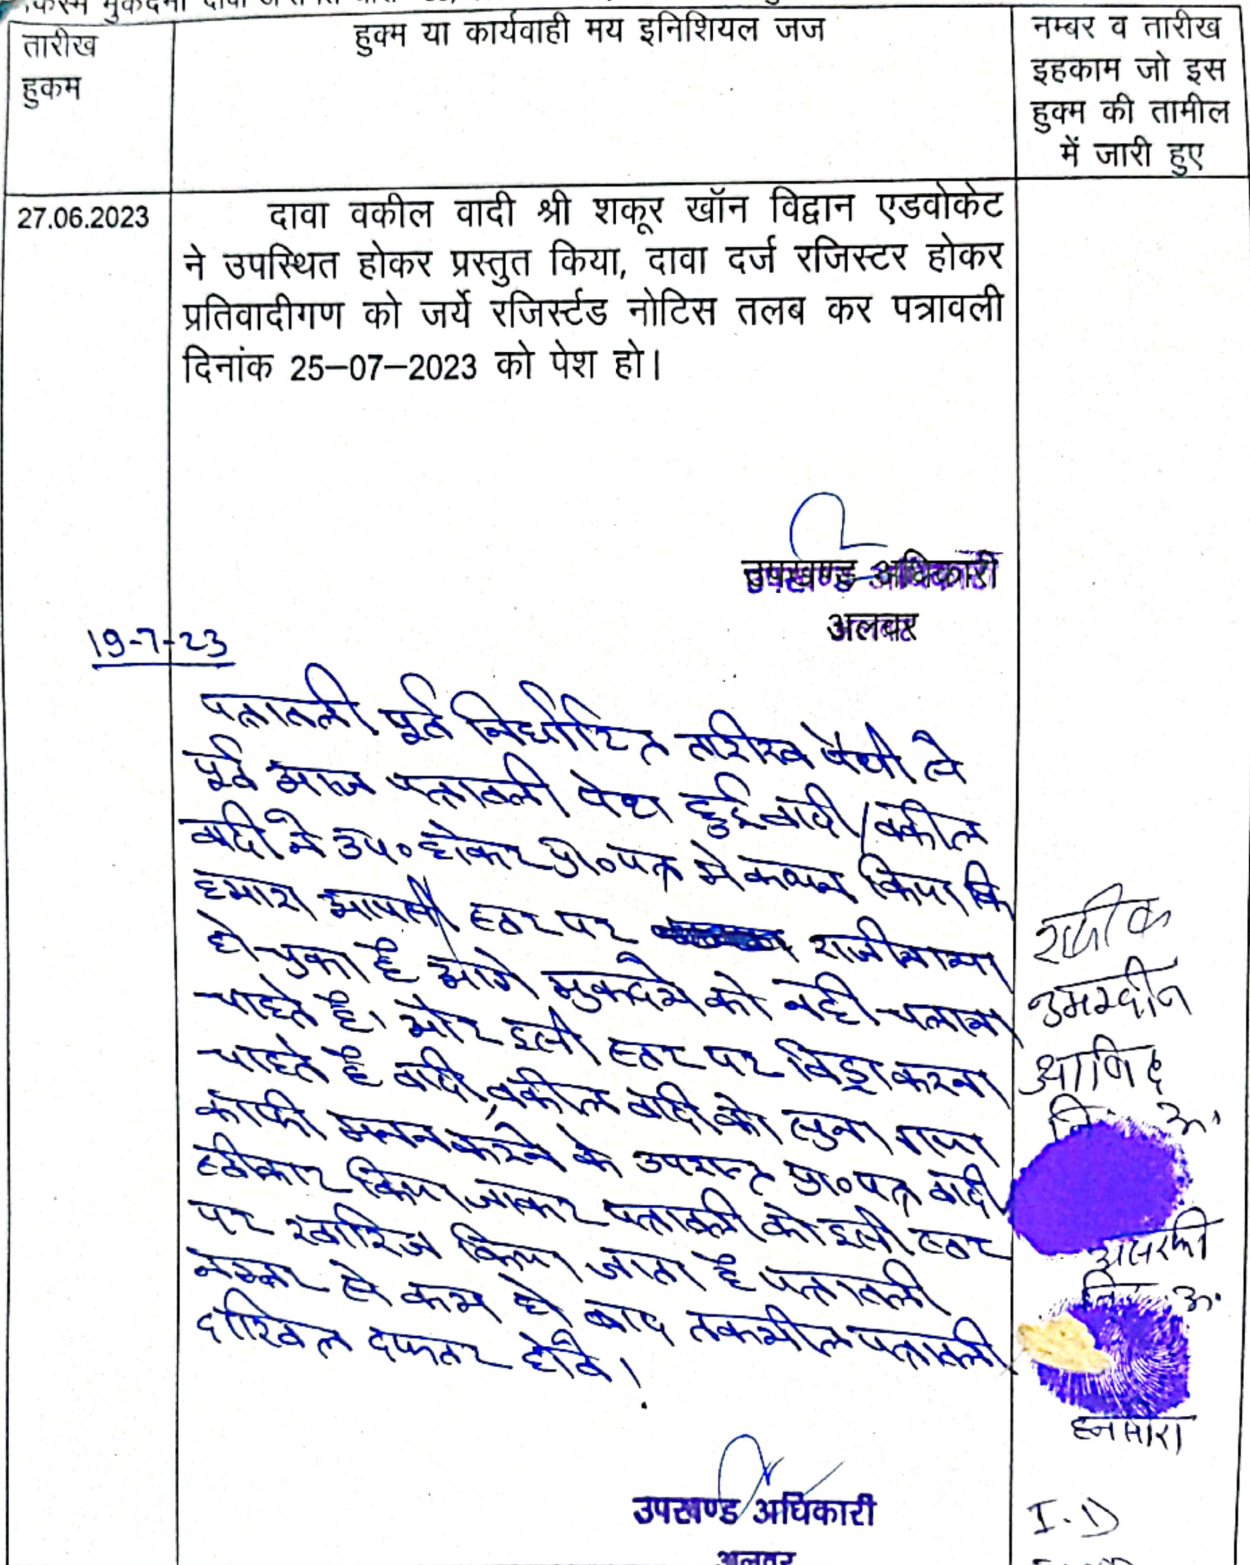 तारीख हुकम
हुक्म या कार्यवाही मय इनिशियल जज
नम्बर व तारीख
इहकाम जो इस
हुक्म की तामील
में जारी हुए
27.06.2023
दावा वकील वादी श्री शकूर खॉन विद्वान एडवोकेट
ने उपस्थित होकर प्रस्तुत किया, दावा दर्ज रजिस्टर होकर
प्रतिवादीगण को जर्ये रजिर्स्टड नोटिस तलब कर पत्रावली
दिनांक 25–07–2023 को पेश हो।
उपखण्ड अधिकारी
अलवर
19-7-23
पत्रावली पूर्व निर्धारित तारीख पेशी से
पूर्व आज पत्रावली पेश हुई वादी/वकील
वादी ने उप० होकर प्रा०पत्र मे कथन किया कि
हमारा आपसी स्तर पर राजीनामा
हो चुका है आगे मुकदमे को नही चलाना
चाहते है। और इसी स्तर पर विड्रा करना
चाहते है वादी, वकील वादी को सुना गया
काफी मनन करने के उपरान्त प्रा०पत्र वादी
स्वीकार किया जाकर पत्रावली को इसी स्तर
पर खारिज किया जाता है पत्रावली
नम्बर से कम हो बाद तकमील पत्रावली
दाखिल दफ्तर होवे।
रफीक
उमरदीन
आबिद
नि० अ.
असरफी
नि० अ.
हनसीरा
उपखण्ड अधिकारी
अलवर
I.D